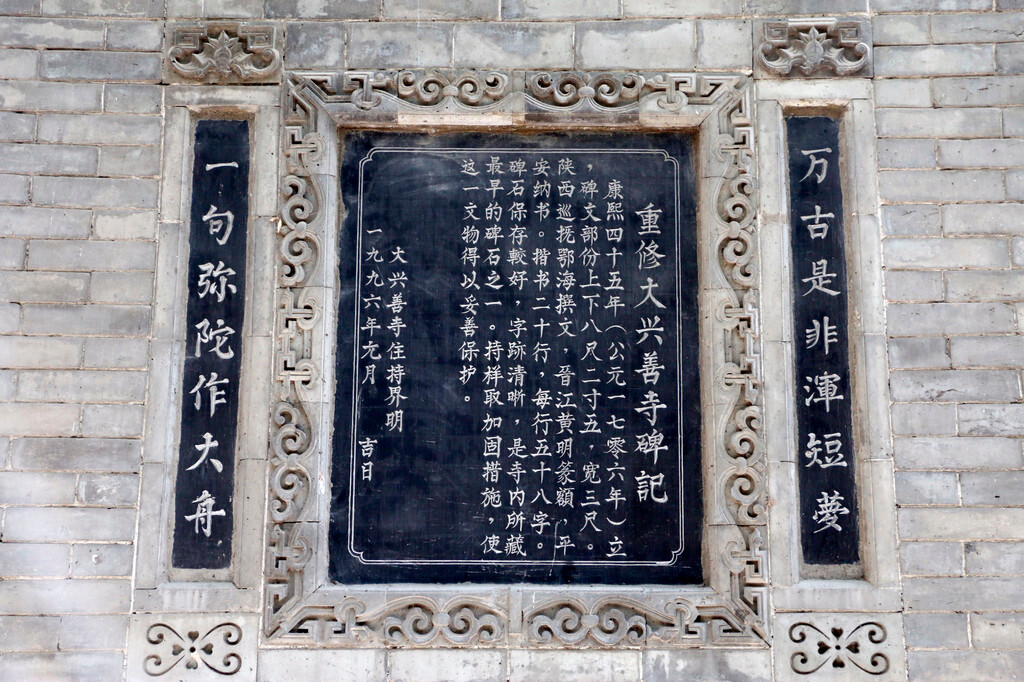 万古是非渾短夢
重修大兴善寺碑記
康熙四十五年（公元一七零六年）立
，碑文部份上下八尺二寸五，宽三尺。
陕西巡抚鄂海撰文，晉江黄明篆額，平
安纳书。揩书二十行，每行五十八字。
碑石保存較好，字跡清晰，是寺内所藏
最早的碑石之一。持样取加固措施，使
这一文物得以妥善保护。
大兴善寺住持界明
一九九六年九月 吉日
一句弥陀作大舟